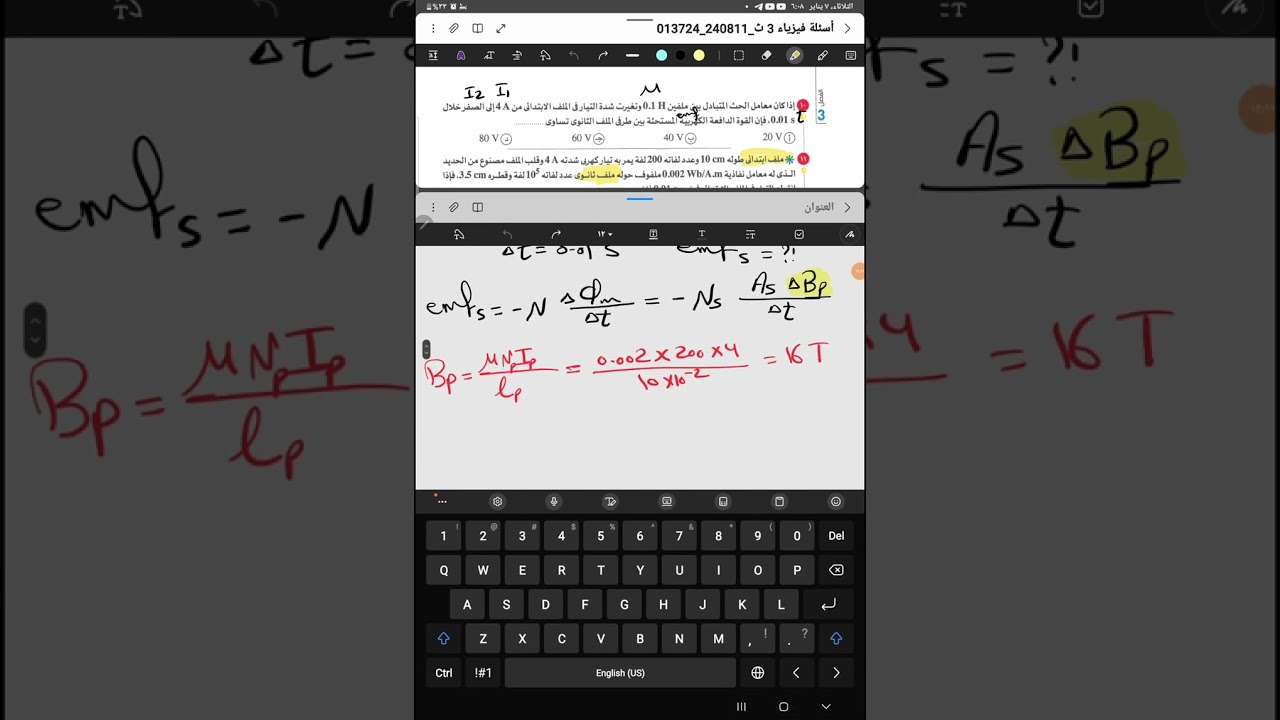 الثلاثاء، ٧ يناير ٦:٠٨
٪٢٣
أسئلة فيزياء 3 ث_240811_013724
I₂ I₁ M
الفصل
3
١٠ إذا كان معامل الحث المتبادل بين ملفين 0.1 H وتغيرت شدة التيار فى الملف الابتدائى من 4 A إلى الصفر خلال
0.01 s، فإن القوة الدافعة الكهربية المستحثة بين طرفى الملف الثانوى تساوى ............
emf t
أ 20 V ب 40 V ج 60 V د 80 V
١١ * ملف ابتدائى طوله 10 cm وعدد لفاته 200 لفة يمر به تيار كهربى شدته 4 A وقلب الملف مصنوع من الحديد
الذى له معامل نفاذية 0.002 Wb/A.m ملفوف حوله ملف ثانوى عدد لفاته 10⁵ لفة وقطره 3.5 cm، فإذا
العنوان
١٢
Δt = 0.01 s emfs = ?!
emfs = -N ΔΦm/Δt = -Ns As ΔBp/Δt
Bp = μNpIp/lp = 0.002 x 200 x 4/10 x10⁻² = 16 T
1 2 3 4 5 6 7 8 9 0 Del
Q W E R T Y U I O P
A S D F G H J K L
Z X C V B N M , ! . ?
Ctrl !#1 English (US)